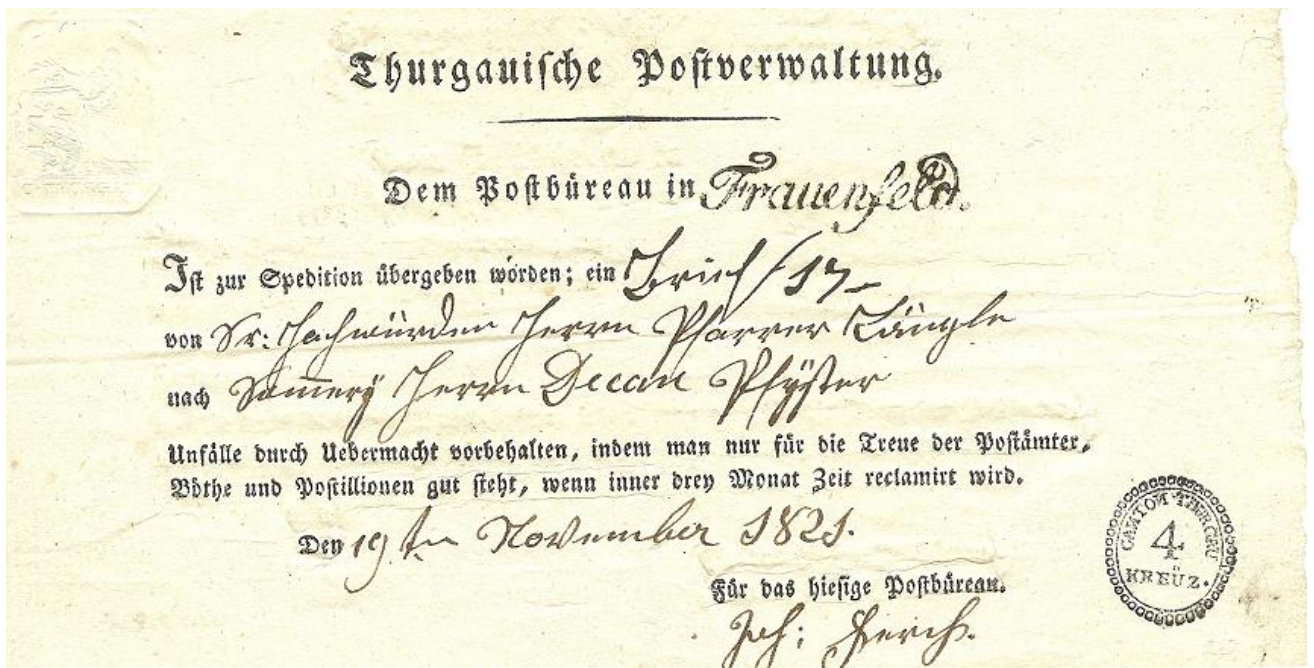 Thurgauische Postverwaltung.
Dem Postbüreau in Frauenfeld.
Ist zur Spedition übergeben worden; ein Brief / 17-
von Sr: Hochwürden Herrn Pfarrer Längle
nach Sommery Herrn Decan Pfÿster
Unfälle durch Uebermacht vorbehalten, indem man nur für die Treue der Postämter,
Böthe und Postillionen gut steht, wenn inner drey Monat Zeit reclamirt wird.
Den 19ten November 1821.
CANTON THURGAU
4
KREÜZ.
Für das hiesige Postbüreau.
Joh: